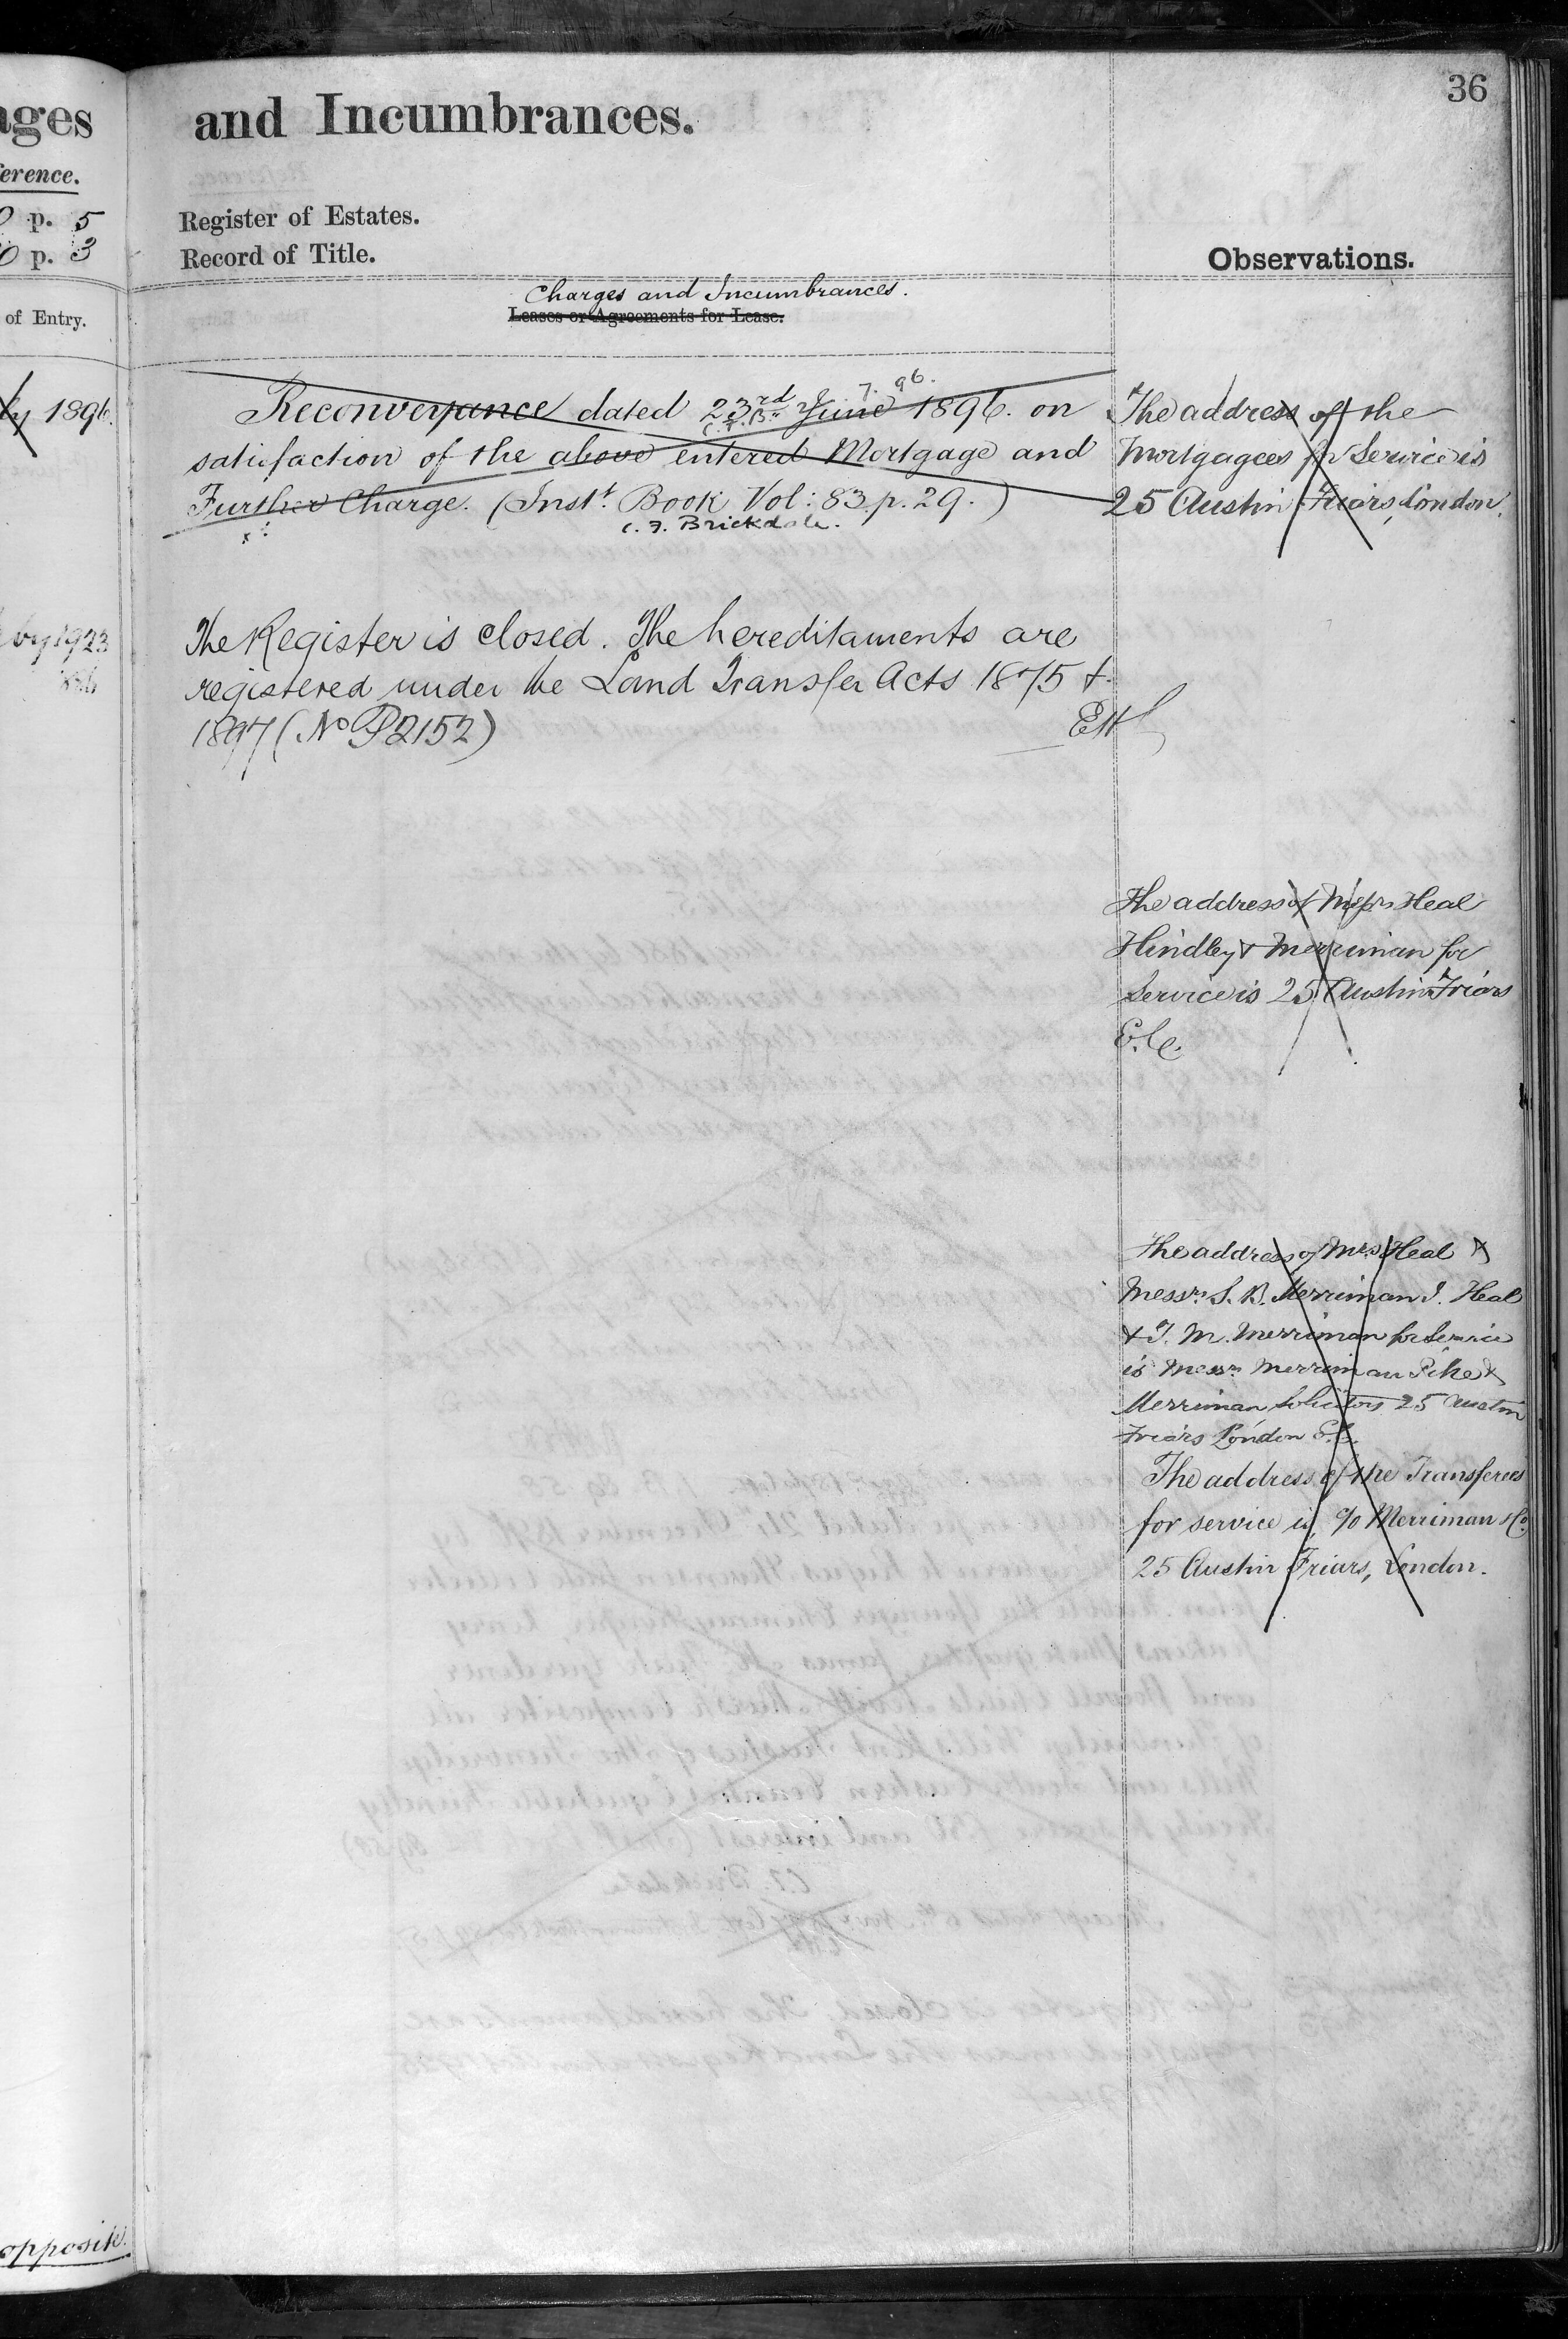 36
ages
and Incumbrances.
erence.
p. 5
Register of Estates.
p. 3
Record of Title.
Observations.
of Entry.
Charges and Incumbrances.
Leases or Agreements for Lease.
1896.
7. 96.
Reconveyance dated 23rd June 1896. on
C.F.B.
satisfaction of the above entered Mortgage and
Further Charge. (Inst. Book Vol: 83. p. 29.)
C. F. Brickdale.
The address of the
Mortgagees for Service is
25 Austin Friars, London.
by 1923
The Register is closed. The hereditaments are
registered under the Land Transfer Acts 1875 &
1897 (No P2152)
The address of Messrs Heal
Hindley & Merriman for
Service is 25 Austin Friars
E.C.
The address of Mrs Heal &
Messrs S. B. Merriman J. Heal
& T. M. Merriman for Service
is Messrs Merriman Pike &
Merriman Solicitors 25 Austin
Friars London E.C.
The address of the Transferees
for service is, c/o Merriman & Co
25 Austin Friars, London.
opposite.